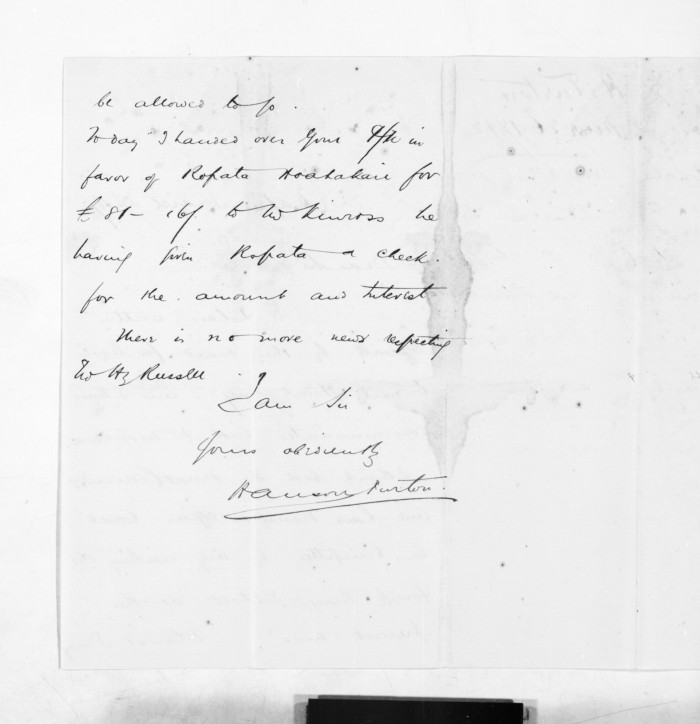 be allowed to go.
To day I handed over your P/N in
favor of Ropata Hoahakaii for
£81-16/ to Mr Kinross he
having given Ropata a check.
for the amount and Interest
There is no more news respecting
H Russell
I am Sir
Yours obediently
Hanson Turton.
H Turton